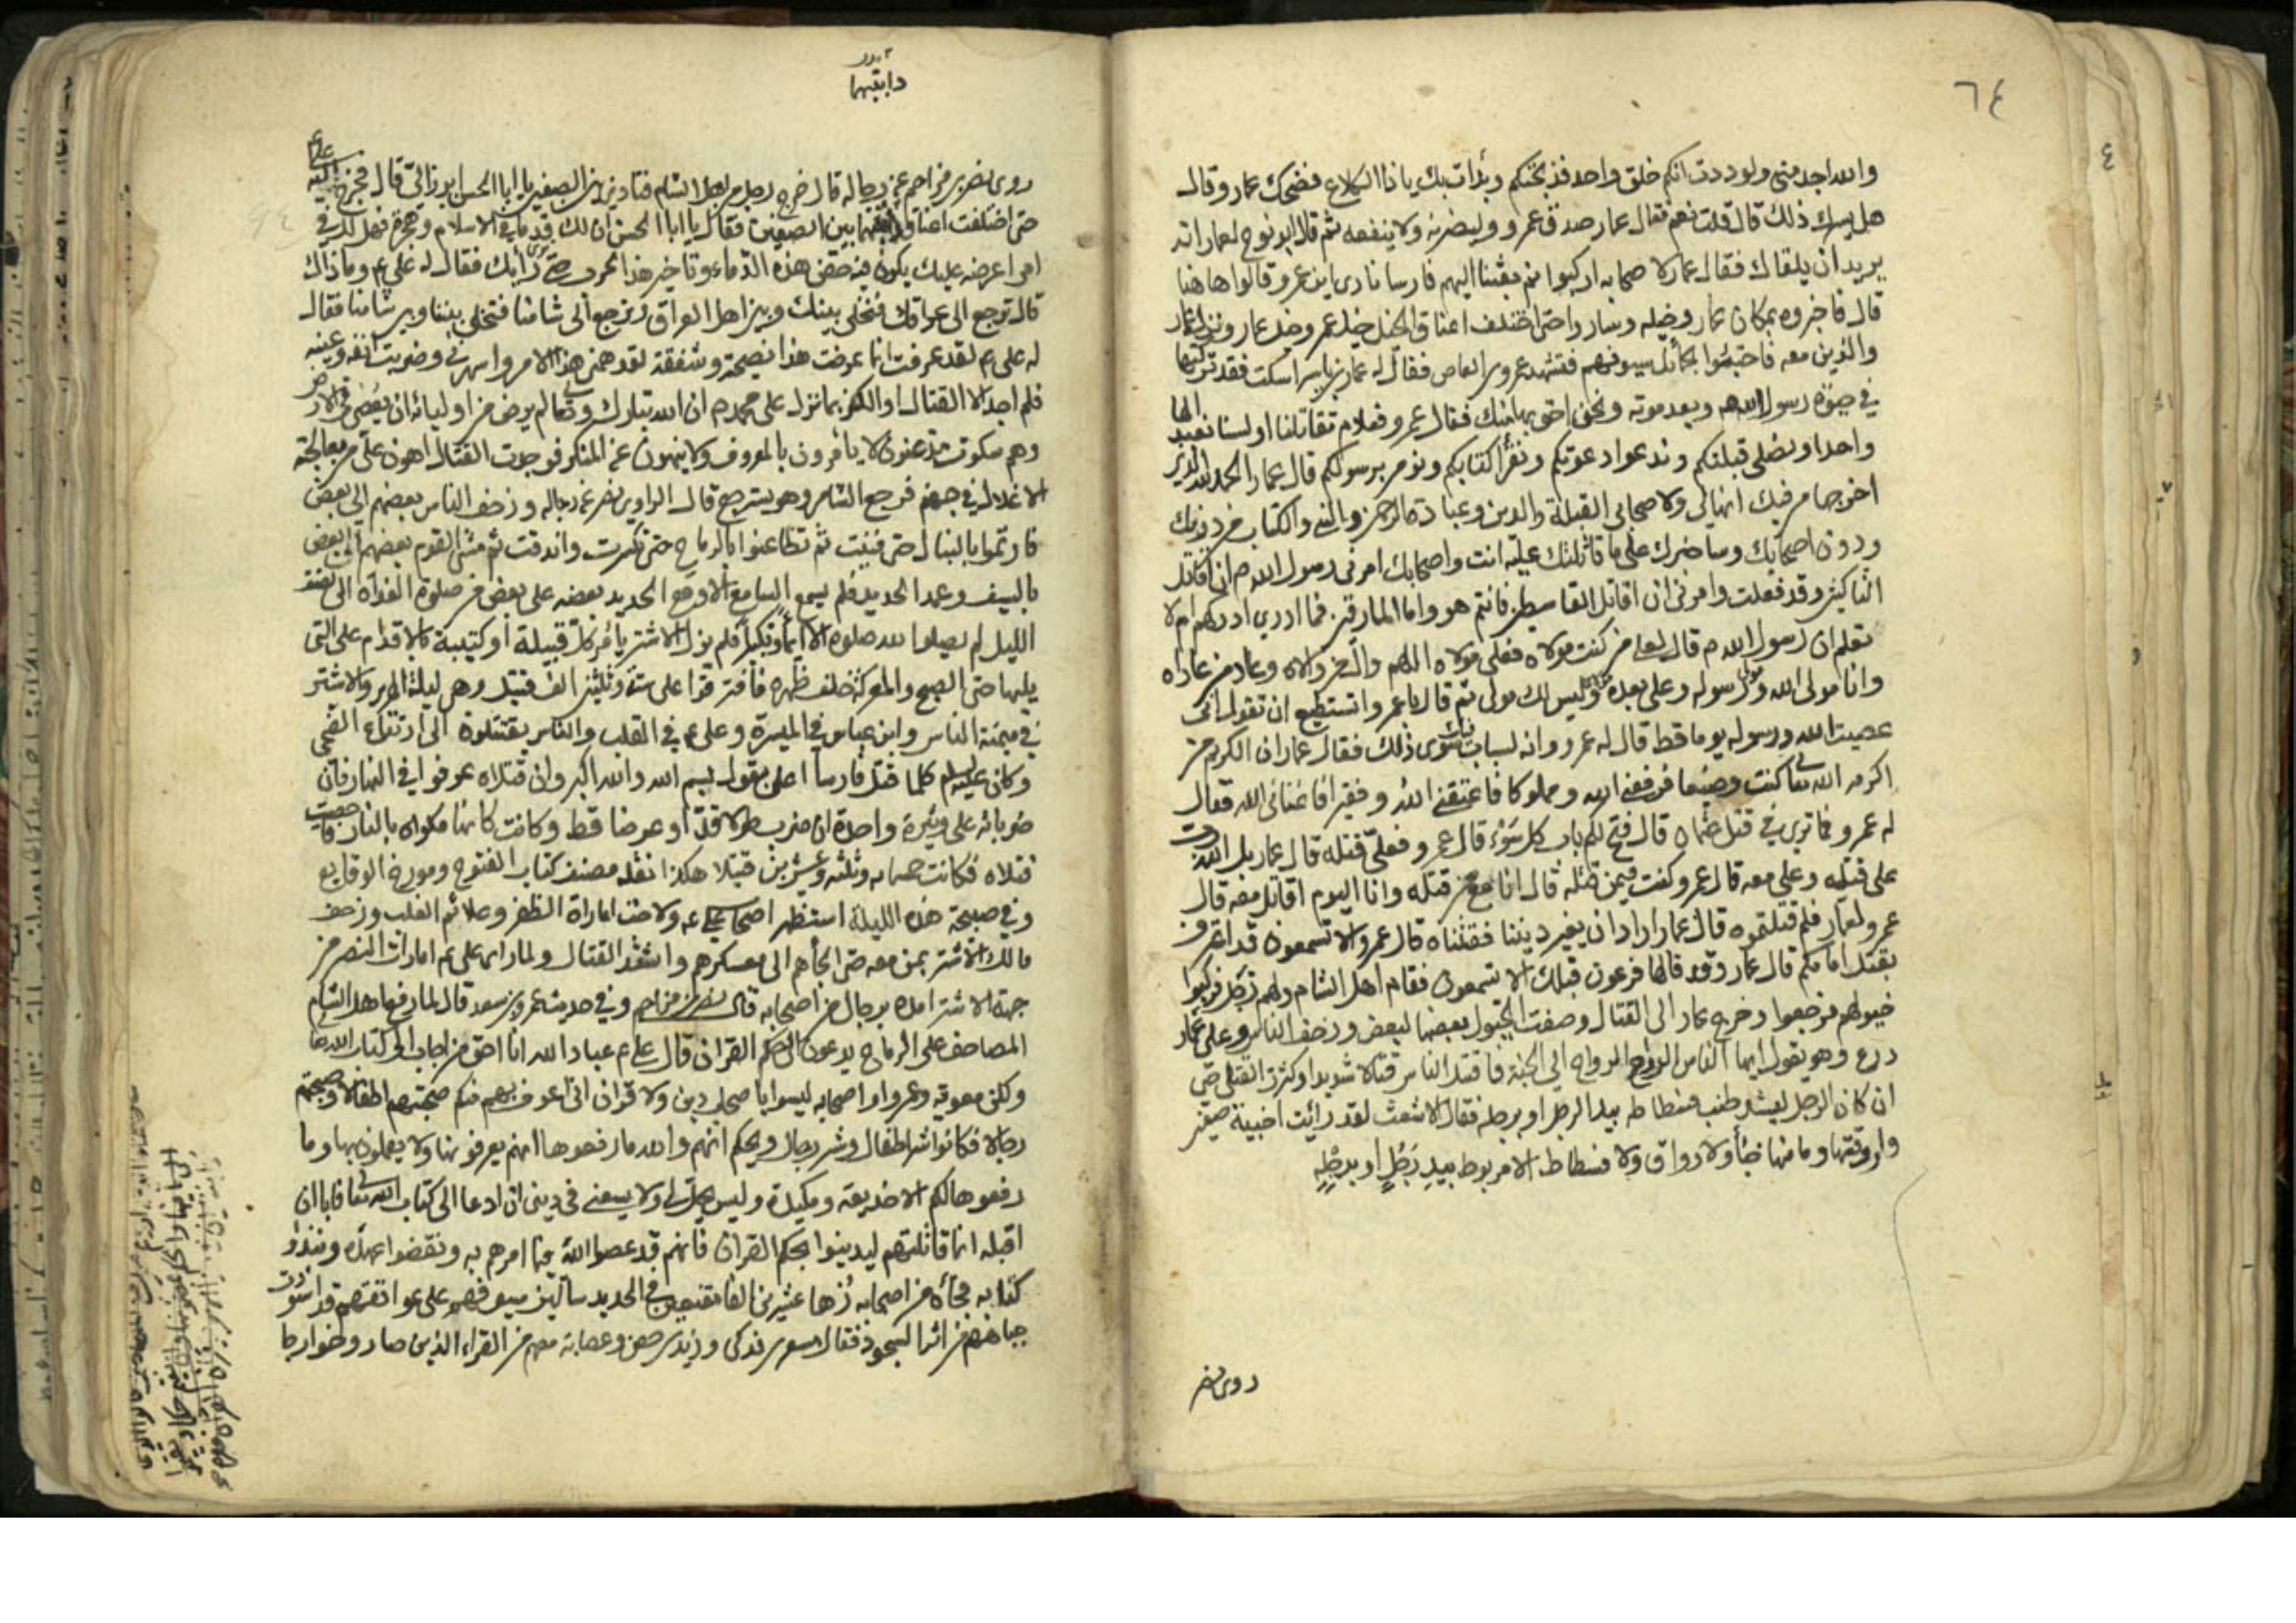 ٦٤
والله اجد منى ولوددت انكم خلق واحد فذبحتكم وبدأت بك يا ذا الكلاع فضحك عمار وقال
هل يسرك ذلك قال قلت نعم فقال عمار صدق عمرو وليضربنه ولا ينفعه ثم قال ابو نوح لعمار انه
يريد ان يلقاك فقال عمار لاصحابه اركبوا ثم بعثنا اليهم فارسا نادى اين عمرو قالوا هاهنا
قال فاخبروه بمكان عمار وخيله وساروا حتى اختلف اعناق الخيل خيل عمرو وخيل عمار ونزل عمار
والذين معه فاحتبئوا بحمائل سيوفهم فتشهد عمرو بن العاص فقال له عمار بن ياسر اسكت فقد تركتها
في حيوة رسول الله وبعد موته ونحن احق بها منك فقال عمرو فعلام تقاتلنا اولسنا نعبد الها
واحدا ونصلى قبلتكم وندعوا دعوتكم ونقرأ كتابكم ونومن برسولكم قال عمار الحمد لله الذى
اخرجها من فيك انها لى ولاصحابى القبلة والدين وعبادة الرحمن والنبى والكتاب من دونك
ودون اصحابك وساخبرك على ما قاتلتك عليه انت واصحابك امرنى رسول الله ص ان اقاتل
الناكثين وقد فعلت وامرنى ان اقاتل القاسطين فانتم هم واما المارقين فما ادرى ادركهم ام لا
تعلم ان رسول الله ص قال لعلى من كنت مولاه فعلى مولاه اللهم وال من والاه وعاد من عاداه
وانا مولى الله ورسوله وعلى بعده وليس لك مولى ثم قال يا عمرو اتستطيع ان تقول انى
عصيت الله ورسوله يوما قط قال له عمرو وانه لسبابك سوى ذلك فقال عمار ان الكريم من
اكرمه الله تعا كنت وضيعا فرفعنى الله ومملوكا فاعتقنى الله وفقيرا فاغنانى الله فقال
له عمرو فما ترى في قتل عثمان قال فتح لكم باب كل سوء قال عمرو فعلى قتله قال عمار بل الله
على قتله وعلى معه قال عمرو كنت فيمن قتله قال انا مع من قتله وانا اليوم اقاتل معه قال
عمرو لعمار فلم قتلتموه قال عمار اراد ان يغير ديننا فقتلناه قال عمرو الا تسمعون قد اعترف
بقتل امامكم قال عمار وقد قالها فرعون قبلك الا تسمعون فقام اهل الشام ولهم زجل فركبوا
خيولهم فرجعوا وخرج عمار الى القتال وصفت الخيول بعضها لبعض وزحف الناس وعلى عمار
درع وهو يقول ايها الناس الرواح الرواح الى الجنة فاقتتل الناس قتالا شديدا وكثرت القتلى حتى
ان كان الرجل ليشد طنب فسطاطه بيد الرجل او برجله فقال الاشعث لقد رائيت اخبية صفين
واروقتها وما منها خباء ولا رواق ولا فسطاط الا مربوط بيد رجل او برجله
روى نصر
دابتيهما
روى نصر بن مزاحم عن رجاله قال خرج رجل من اهل الشام فنادى بين الصفين يا ابا الحسن ابرز الى قال فخرج اليه على
حتى اختلفت اعناق دابتيهما بين الصفين فقال يا ابا الحسن ان لك قدما في الاسلام وهجرة فهل لك في
امر اعرضه عليك يكون فيه حقن هذه الدماء وتاخير هذا الحرب حتى ترى رأيك فقال له على ع وما ذاك
قال ترجع الى عراقك فنخلى بينك وبين اهل العراق ونرجع الى شامنا فتخلى بيننا وبين شامنا فقال
له على ع لقد عرفت انما عرضت هذا نصيحة وشفقة لقد همنى هذا الامر واسهرنى وضربت انفه وعينيه
فلم اجد الا القتال او الكفر بما نزل على محمد ص ان الله تبارك وتعالى لم يرض من اوليائه ان يعصى في الارض
وهم سكوت مذعنون لا يأمرون بالمعروف ولا ينهون عن المنكر فوجدت القتال اهون على من معالجة
الاغلال في جهنم فرجع الشامى وهو يسترجع قال الراوى نصر عن رجاله وزحف الناس بعضهم الى بعض
فارتموا بالنبال حتى فنيت ثم تطاعنوا بالرماح حتى تكسرت واندقت ثم مشى القوم بعضهم الى بعض
بالسيف وعمد الحديد فلم يسمع السامع الا وقع الحديد بعضه على بعض من صلوة الغداة الى نصف
الليل لم يصلوا لله صلوة الا ايماء وتكبيرا فلم يزل الاشتر يأمر كل قبيلة او كتيبة بالاقدام على التى
يليها حتى الصبح والمعركة خلف ظهره فافترقوا على ستة وثلثين الف قتيل وهى ليلة الهرير والاشتر
في ميمنة الناس وابن عباس في الميسرة وعلى ع في القلب والناس يقتتلون الى ارتفاع الضحى
وكان عليه السلم كلما قتل فارسا اعلن بقول بسم الله والله اكبر وان قتلاه عرفوا في النهار فان
ضرباته على وتيرة واحدة ان ضرب طولا قد او عرضا قط وكانت كانها مكواة بالنار فاحصيت
قتلاه فكانت خمسمائه وثلثه وعشرين قتيلا هكذا نقله مصنف كتاب الفتوح ومورخ الوقايع
وفي صبيحة هذه الليلة استظهر اصحاب على ع ولاحت امارات الظفر وعلائم الغلب وزحف
مالك الاشتر بمن معه حتى الجأهم الى معسكرهم واشتد القتال ولما رأى على ع امارات النصر من
جهة الاشتر امده برجال من اصحابه قال نصر بن مزاحم وفي حديث عمرو بن سعد قال لما رفع اهل الشام
المصاحف على الرماح يدعون الى حكم القران قال على ع عباد الله انا احق من اجاب الى كتاب الله تعا
ولكن معوية وعمرو واصحابه ليسوا باصحاب دين ولا قران انى اعرف بهم منكم صحبتهم اطفالا وصحبتهم
رجالا فكانوا شر اطفال وشر رجال ويحكم انهم والله ما رفعوها انهم يعرفونها ولا يعملون بها وما
رفعوها لكم الا خديعة ومكيدة وليس يحل لى ولا يسعنى في دينى ان ادعا الى كتاب الله تعا فابا ان
اقبله انما قاتلتهم ليدينوا بحكم القران فانهم قد عصوا الله فيما امرهم به ونقضوا عهده ونبذوا
كتابه فجائه من اصحابه زهاء عشرين الفا مقنعين في الحديد سالين سيوفهم على عواتقهم قد اسودت
جباههم من اثر السجود فقال مسعر بن فدكى وزيد بن حصن وعصابة معهم من القراء الذين صاروا خوارجا